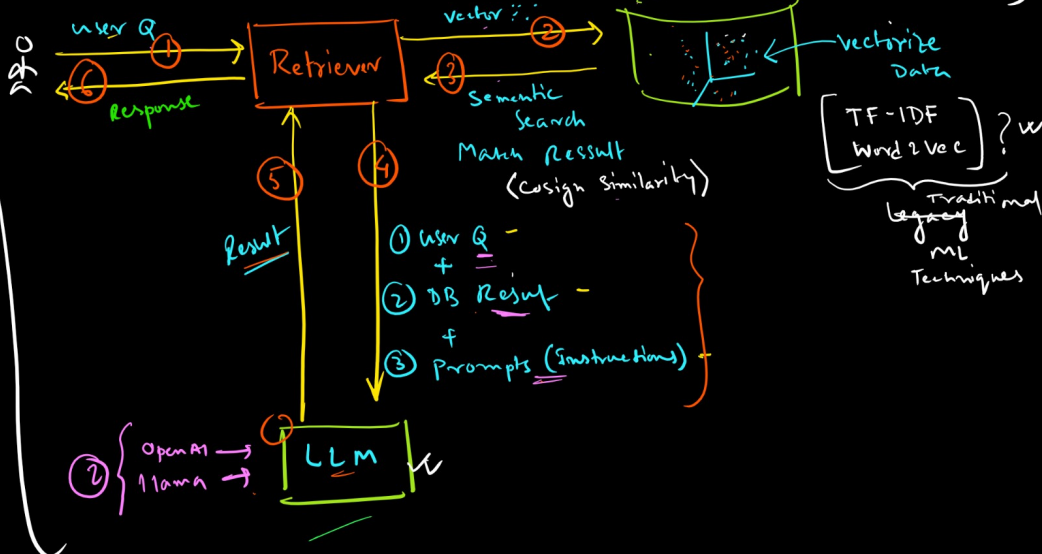 user Q
①
⑥
Response
Retriever
vector
②
③
Sementic
Search
Match Ressult
(Cosign Similarity)
vectorize
Data
TF-IDF
Word2Vec
?
Traditional
Legacy
ML
Techniques
⑤
④
Result
① user Q -
+
② DB Result -
+
③ Prompts (Instructions) -
②
OpenAI
llama
LLM